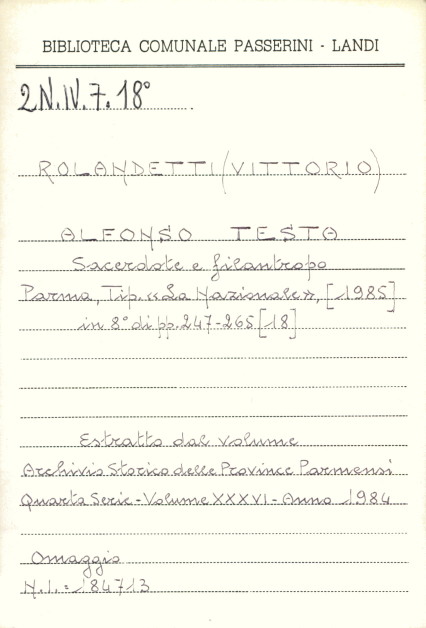 BIBLIOTECA COMUNALE PASSERINI - LANDI
2N.IV.7.18°
ROLANDETTI (VITTORIO)
ALFONSO TESTA
Sacerdote e filantropo
Parma, Tip. «La Nazionale», [1985]
in 8° di pp. 247-265 [18]
Estratto dal volume
Archivio Storico delle Province Parmensi
Quarta Serie - Volume XXXVI - Anno 1984
Omaggio
N.I. = 184713